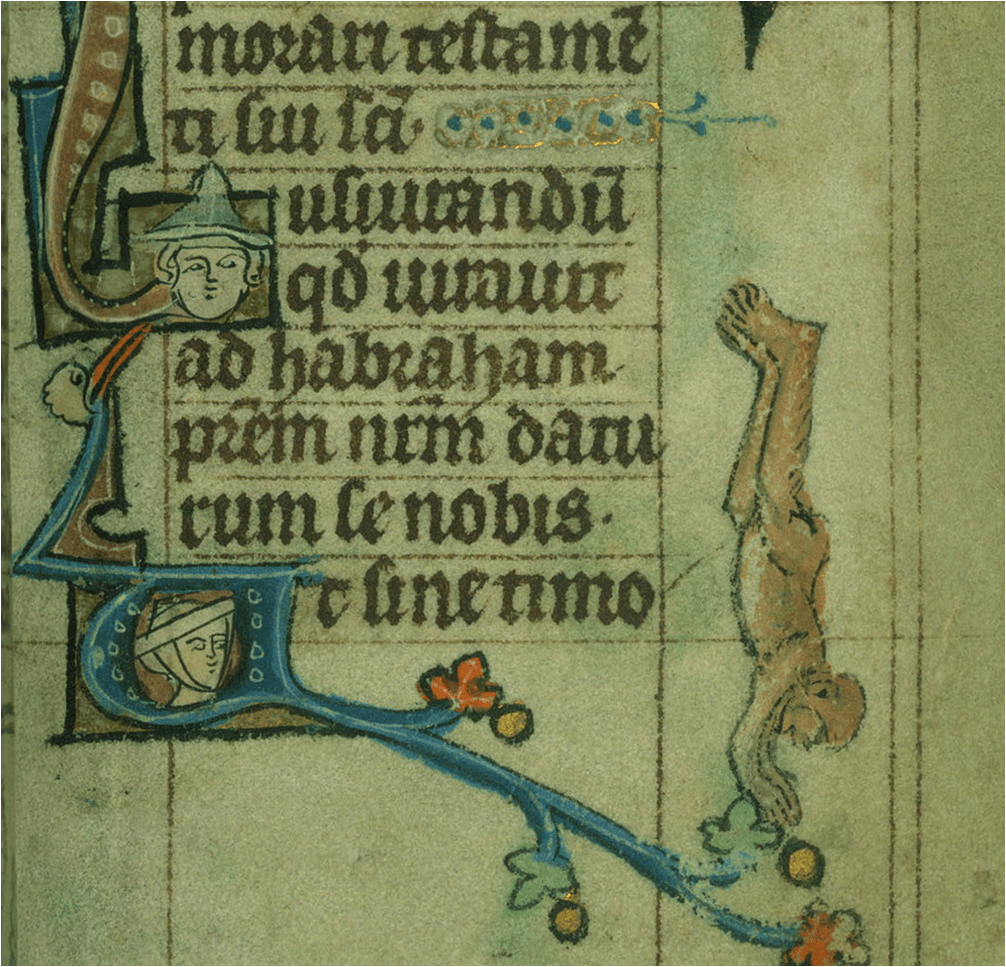 morari testamē
ti sui scī·
usiurandū
qd iurauit
ad habraham
prēm nrm̄ datu
rum se nobis·
t sine timo